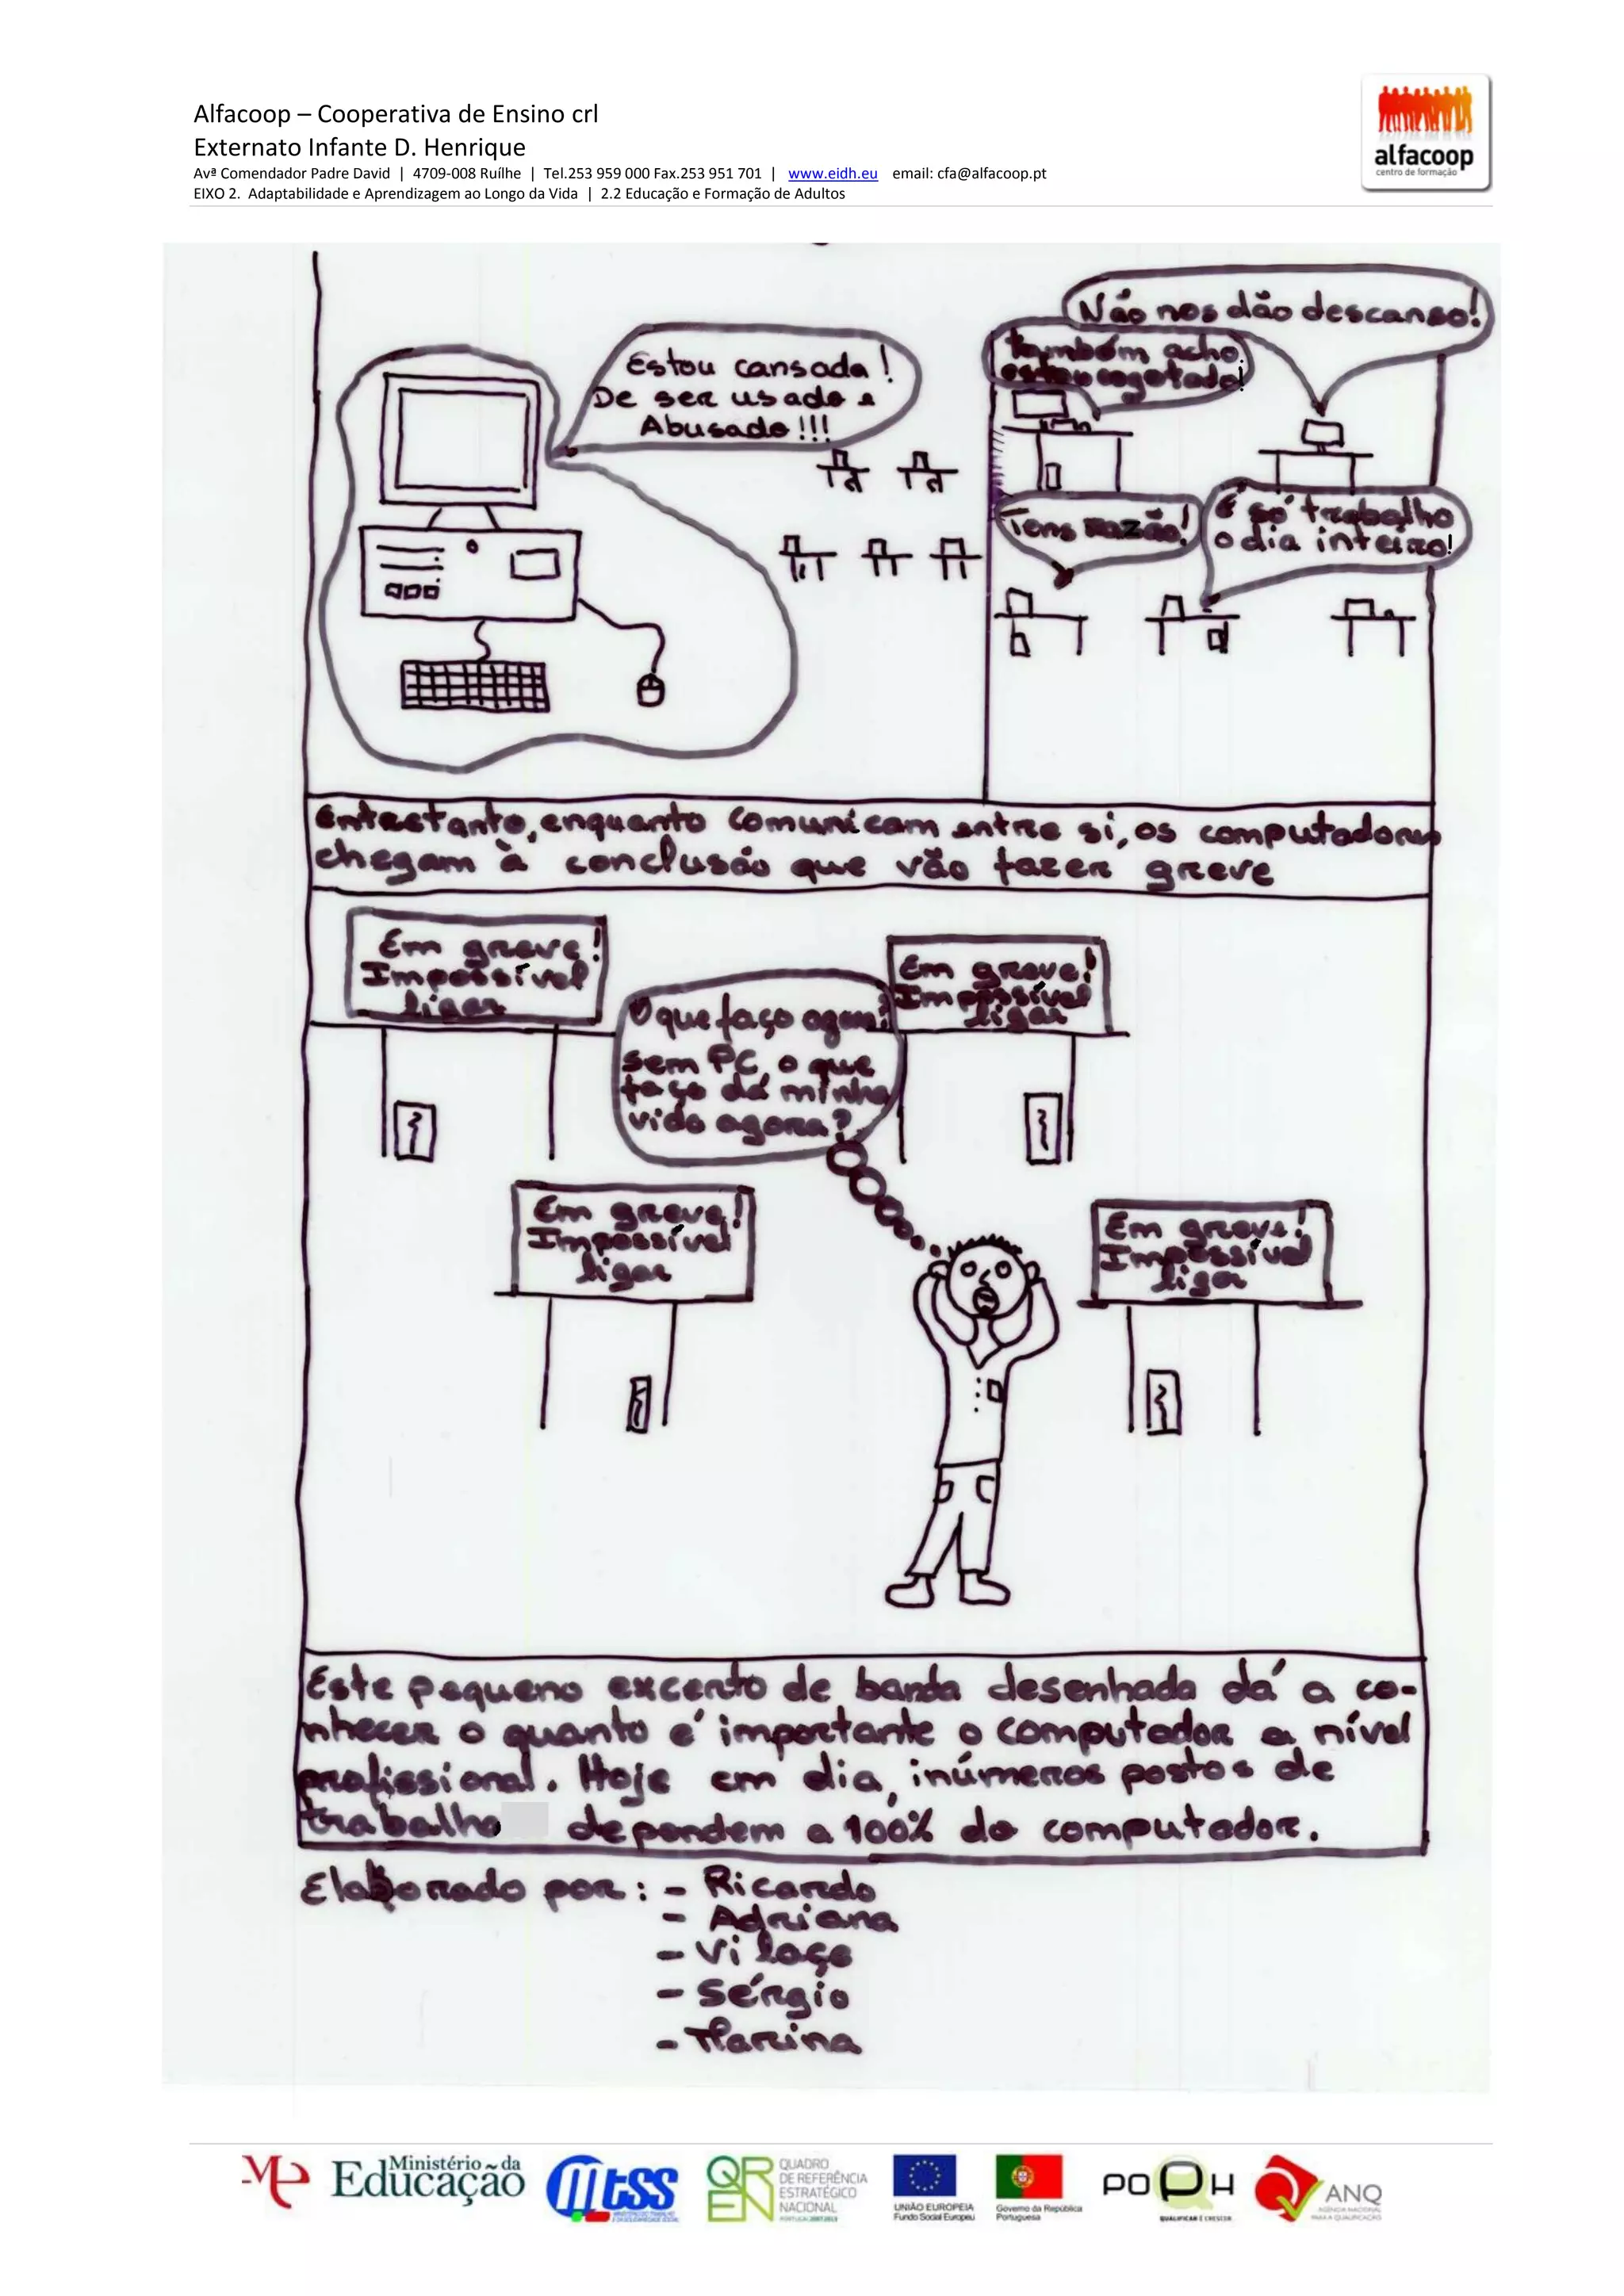 Alfacoop – Cooperativa de Ensino crl
Externato Infante D. Henrique
Avª Comendador Padre David | 4709-008 Ruílhe | Tel.253 959 000 Fax.253 951 701 | www.eidh.eu email: cfa@alfacoop.pt
EIXO 2. Adaptabilidade e Aprendizagem ao Longo da Vida | 2.2 Educação e Formação de Adultos
alfacoop
centro de formação
Estou cansada!
De ser usado e
Abusado!!!
Não nos dão descanso!
também acho
estou esgotado!
Tens razão!
É só trabalho
o dia inteiro!
Entretanto, enquanto comunicam entre si, os computadores
chegam à conclusão que vão fazer greve
Em greve!
Impossível
ligar
O que faço agora?
sem PC, o que
faço dá minha
vida agora?
Em greve!
Impossível
ligar
Em greve!
Impossível
ligar
Em greve!
Impossível
ligar
Este pequeno excerto de banda desenhada dá a co-
nhecer o quanto é importante o computador a nível
profissional. Hoje em dia, inúmeros postos de
trabalho dependem a 100% do computador.
Elaborado por: - Ricardo
- Adriana
- Vilaça
- Sérgio
- Marina
Ministério da
Educação
mtss
QREN
QUADRO
DE REFERÊNCIA
ESTRATÉGICO
NACIONAL
PORTUGAL 2007.2013
UNIÃO EUROPEIA
Fundo Social Europeu
Governo da República
Portuguesa
POPH
QUALIFICAR É CRESCER.
ANQ
AGÊNCIA NACIONAL
PARA A QUALIFICAÇÃO